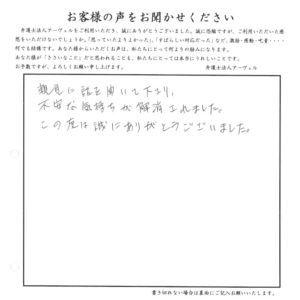 お客様の声をお聞かせください
弁護士法人アーヴェルをご利用いただき、誠にありがとうございました。誠に恐縮ですが、ご利用いただいた感
想をいただけないでしょうか。「思っていたよりよかった」、「すばらしい対応だった」など、激励・感動・叱責・・・・
何でも結構です。あなた様からいただくお声は、私たちにとって何よりの励みになります。
あなた様が「ささいなこと」だと思われることも、私たちにとっては本当にうれしいことです。
お手数ですが、よろしくお願い申し上げます。 弁護士法人アーヴェル
親身に話を聞いて下さり、
不安な気持ちが解消されました。
この度は誠にありがとうございました。
書き切れない場合は裏面にご記入お願いいたします。